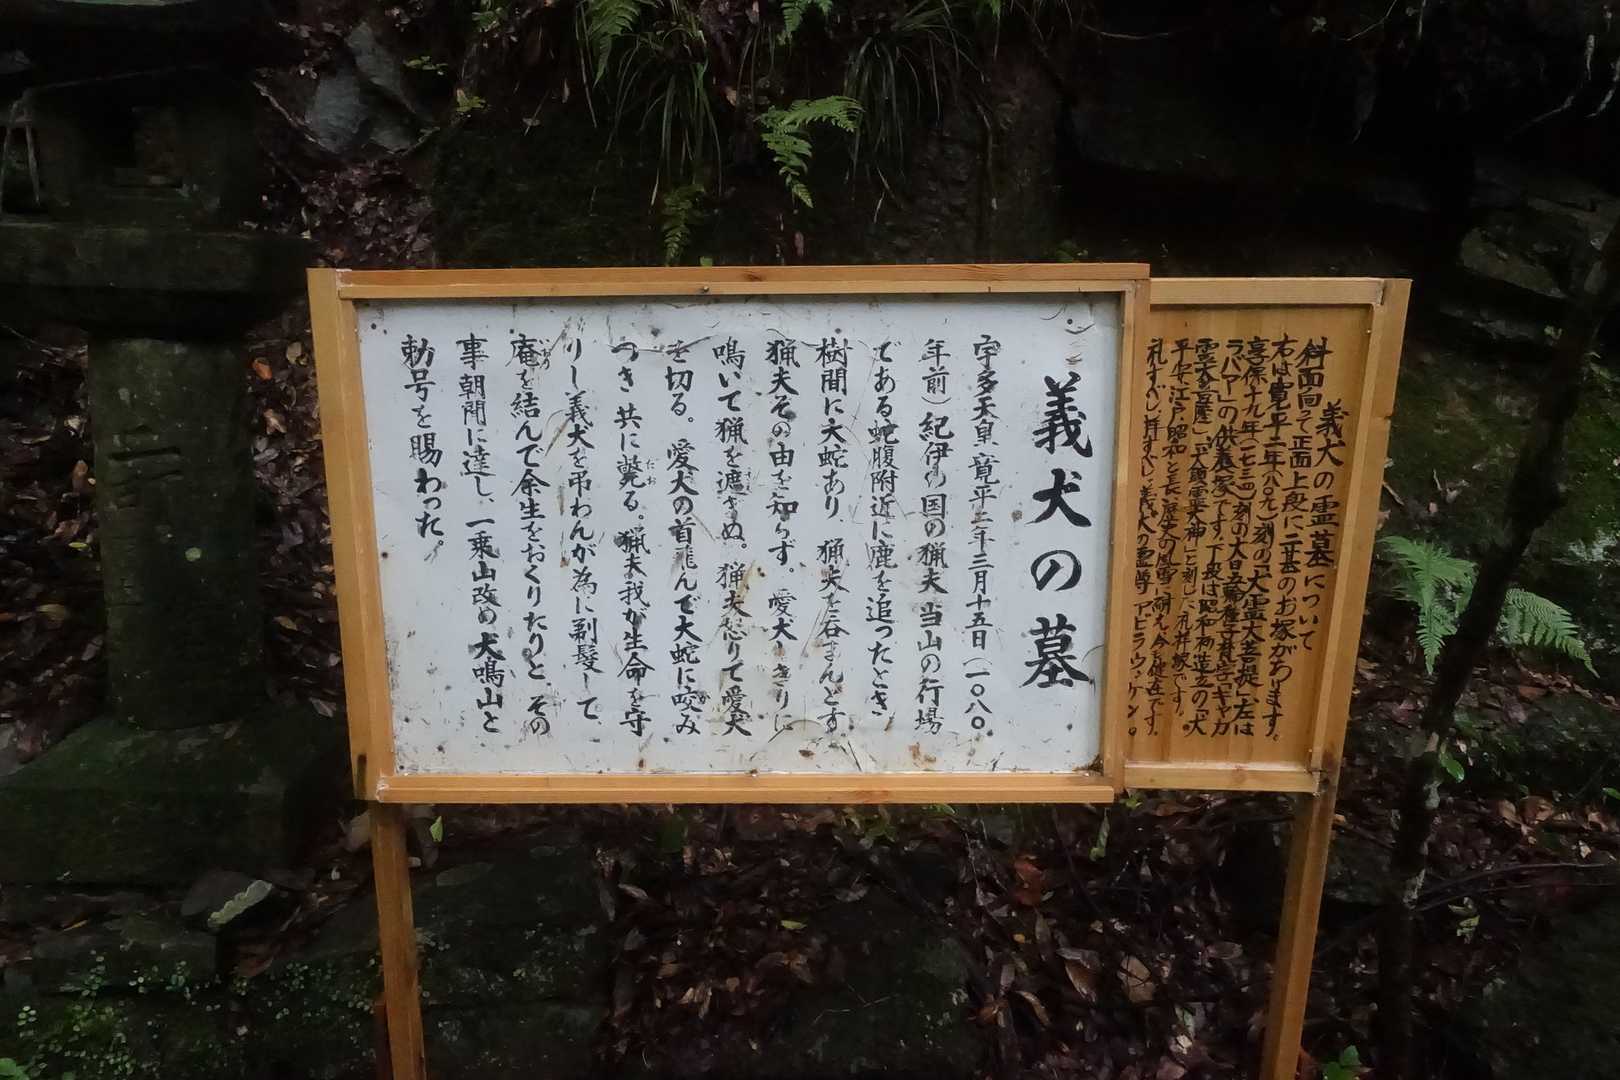 義犬の墓
宇多天皇寛平二年三月十五日(一〇八〇
年前)紀伊の国の猟夫当山の行場
である蛇腹附近に鹿を追ったとき
樹間に大蛇あり、猟夫を呑まんとす
猟夫その由を知らず。愛犬しきりに
鳴いて猟を遮ぎぬ。猟夫怒りて愛犬
を切る。愛犬の首飛んで大蛇に咬み
つき共に斃る。猟夫我が生命を守
りし義犬を弔わんが為に剃髪して、
庵を結んで余生をおくりたりと、その
事朝聞に達し、一乗山改め犬鳴山と
勅号を賜わった。
義犬の霊墓について
斜面向って正面上段に二基のお塚があります。
右は寛平二年(八九〇)刻の「犬霊大菩提」、左は
享保十九年(一七三四)刻の大日五輪種子梵字「キャカ
ラバア」の供養塚です。下段は昭和初造立の「犬
霊大
平安、江戸、昭和と長い歴史の風雪に耐え、今も健在です。
礼すべし、拝すべし、義犬の霊尊 アビラウンケン。